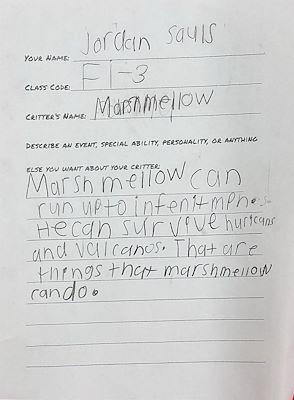 YOUR NAME: Jordan Sauls
CLASS CODE: F1-3
CRITTER'S NAME: Marshmellow
DESCRIBE AN EVENT, SPECIAL ABILITY, PERSONALITY, OR ANYTHING
ELSE YOU WANT ABOUT YOUR CRITTER:
Marshmellow can
run upto infenit mph.
He can survive huricans
and valcanos. That are
things that marshmellow
can do.